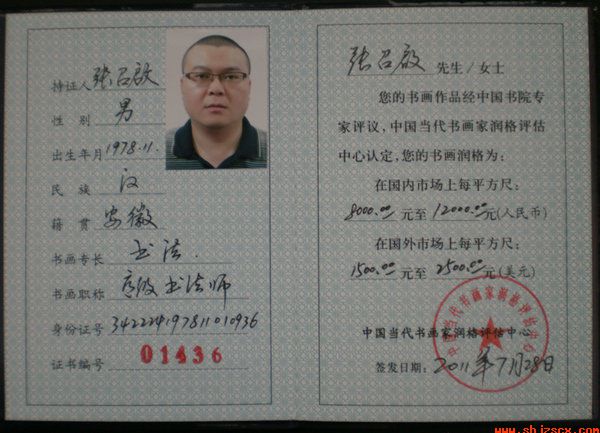 持证人 张召啟
性 别 男
出生年月 1978.11.
民 族 汉
籍 贯 安徽
书画专长 书法.
书画职称 高级书法师
身份证号 342224197811010936
证书编号 01436
张召啟 先生/女士
您的书画作品经中国书院专
家评议，中国当代书画家润格评估
中心认定，您的书画润格为：
在国内市场上每平方尺：
8000.00 元至 12000.00 元(人民币)
在国外市场上每平方尺：
1500.00 元至 2500.00 元(美元)
中国当代书画家润格评估中心
中国当代书画家润格评估中心
签发日期：2011年7月28日
www.shjzscx.com